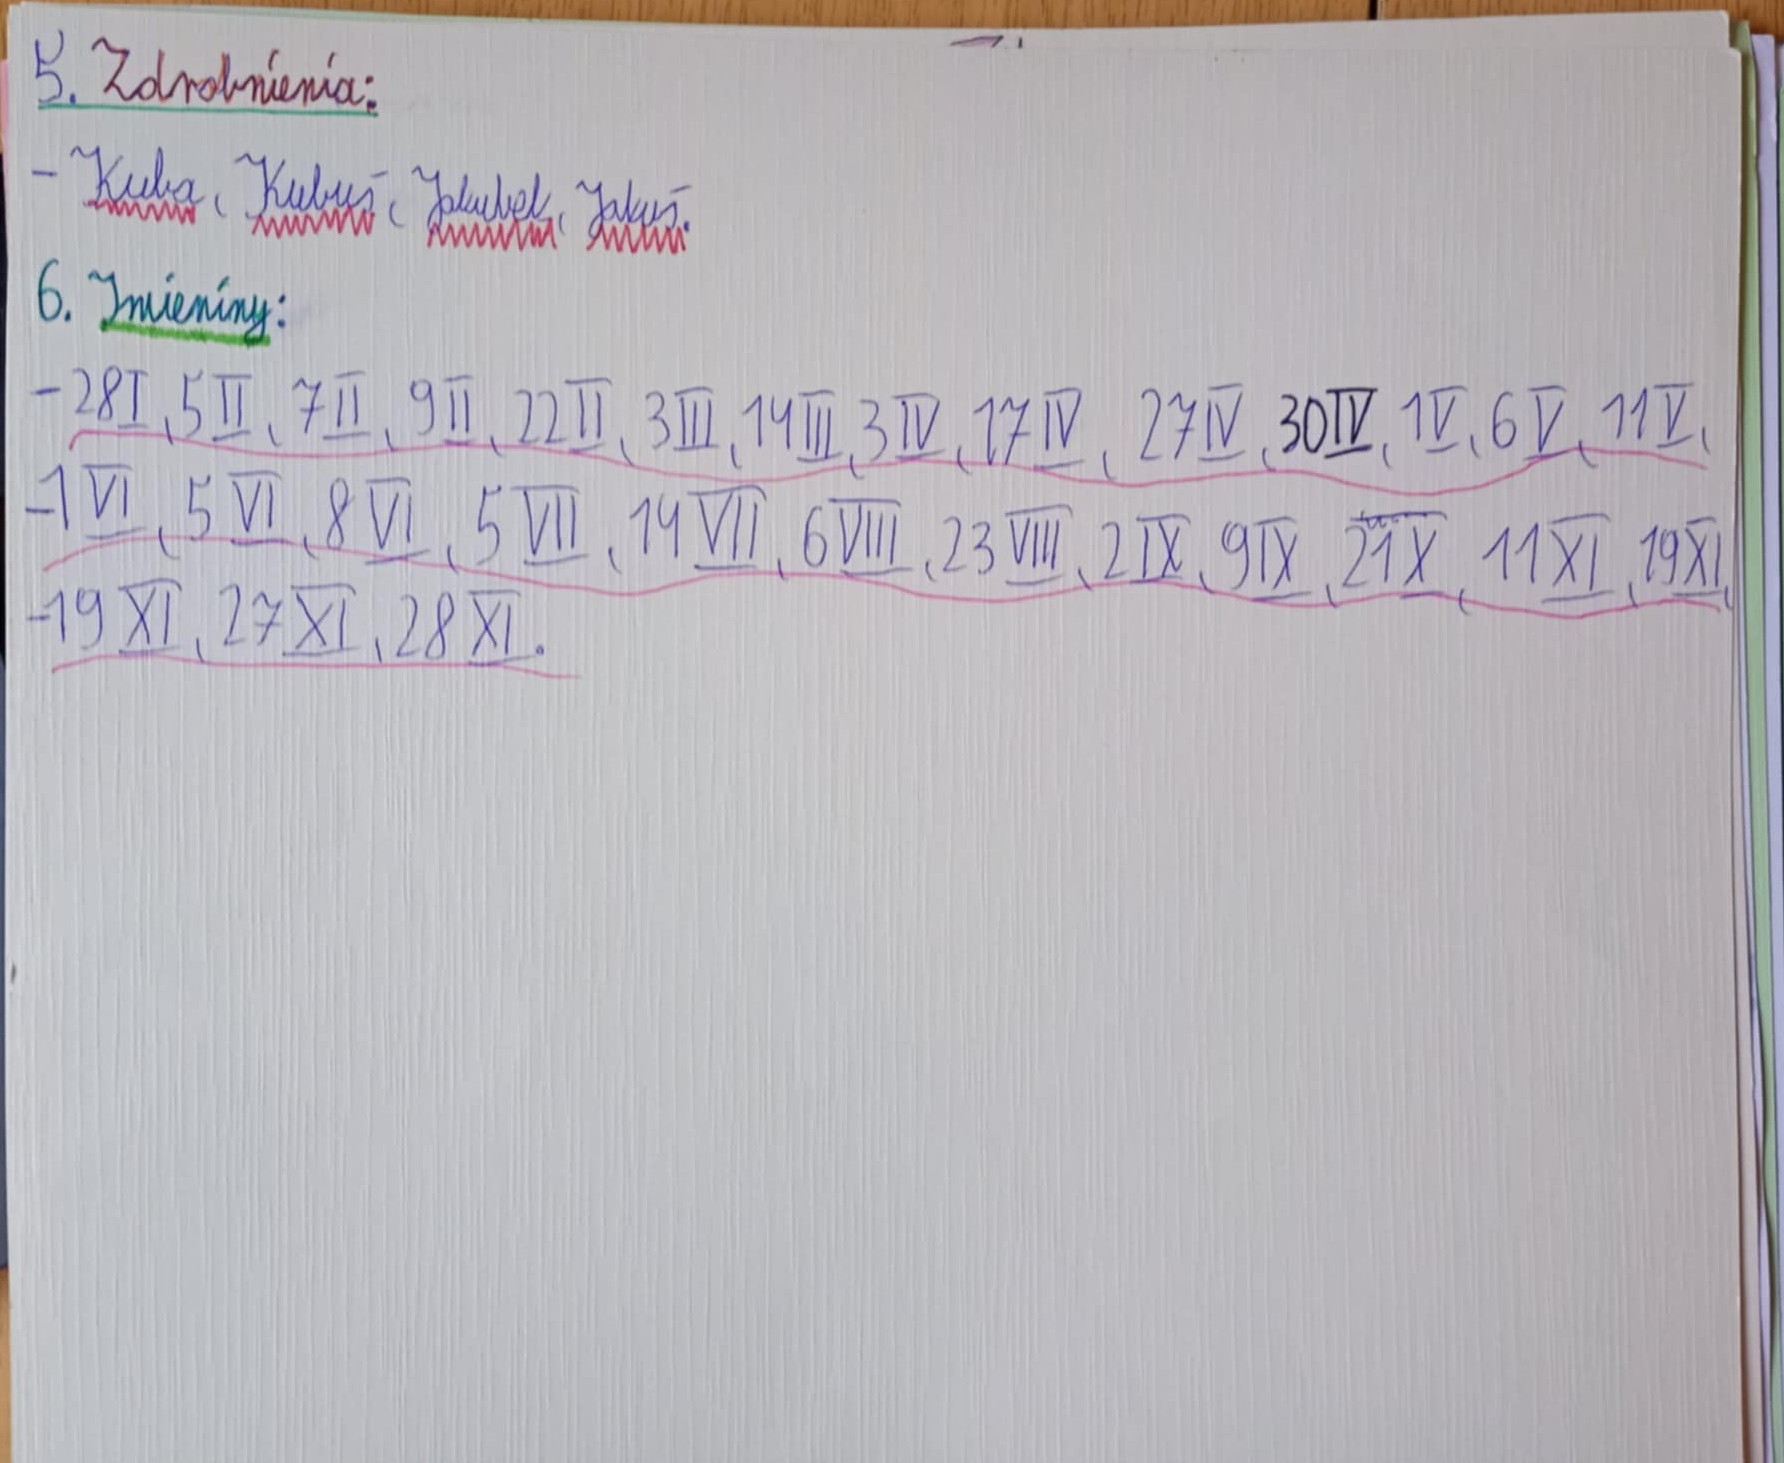 5. Zdrobnienia:
- Kuba, Kubuś, Jakubek, Jakuś.
6. Imieniny:
- 28 I, 5 II, 7 II, 9 II, 22 II, 3 III, 14 III, 3 IV, 17 IV, 27 IV, 30 IV, 1 V, 6 V, 11 V,
- 1 VI, 5 VI, 8 VI, 5 VII, 14 VII, 6 VIII, 23 VIII, 2 IX, 9 IX, 21 X, 11 XI, 19 XI,
- 19 XI, 27 XI, 28 XI.